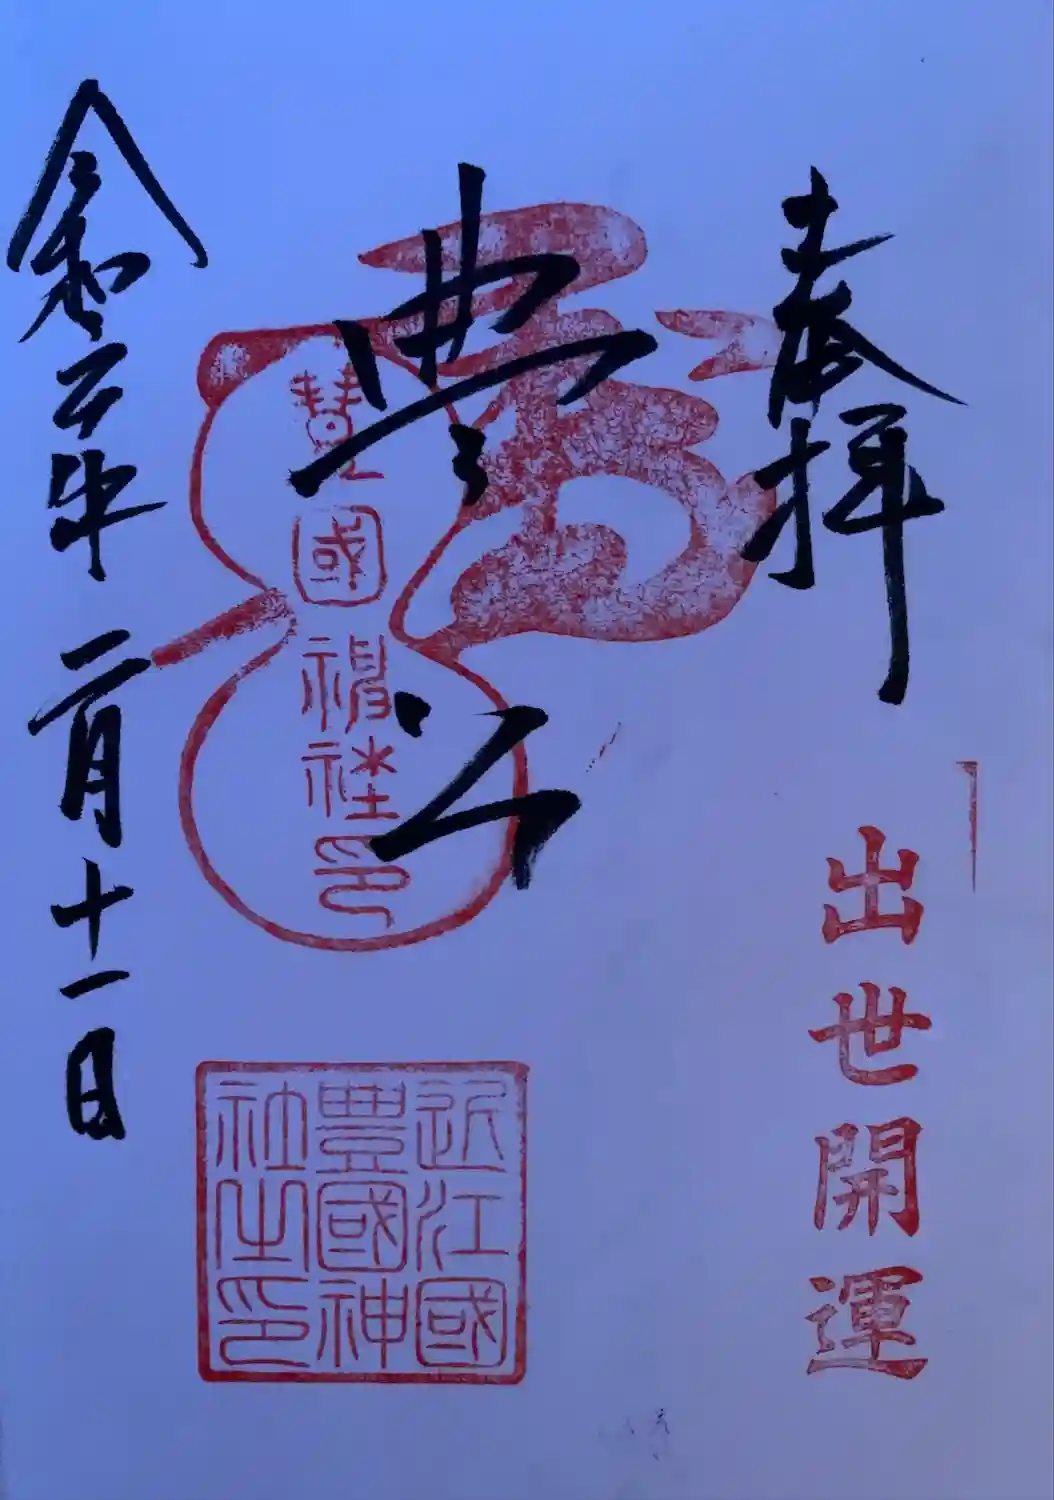 奉拝
出世開運
豊公
豊國神社印
近江國
豊國神
社之印
令和三年二月十一日